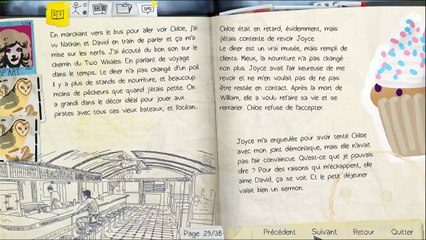 SMS
En marchant vers le bus pour aller voir Chloe, j'ai
vu Nathan et David en train de parler et ça m'a
mise sur les nerfs. J'ai écouté du bon son sur le
chemin du Two Whales. En parlant de voyage
dans le temps. Le diner n'a pas changé d'un poil.
Il y a plus de stands de nourriture, et beaucoup
moins de pêcheurs que quand j'étais petite. On
a grandi dans le décor idéal pour jouer aux
pirates avec tous ces vieux bateaux, et l'océan...
Chloe était en retard, évidemment, mais
j'étais contente de revoir Joyce.
Le diner est un vrai musée, mais rempli de
clients. Mieux, la nourriture n'a pas changé
non plus. Joyce avait l'air heureuse de me
revoir et ne m'en voulait pas de ne pas
être restée en contact. Après la mort de
William, elle a voulu refaire sa vie et se
remarier. Chloe refuse de l'accepter.
Joyce m'a engueulée pour avoir tenté Chloe
avec mon joint démoniaque, mais elle n'avait
pas l'air convaincue. Qu'est-ce que je pouvais
dire ? Pour des raisons qui m'échappent, elle
aime David, ça se voit. Et le petit déjeuner
valait bien un sermon.
Page 29/38
Précédent Suivant Retour Quitter